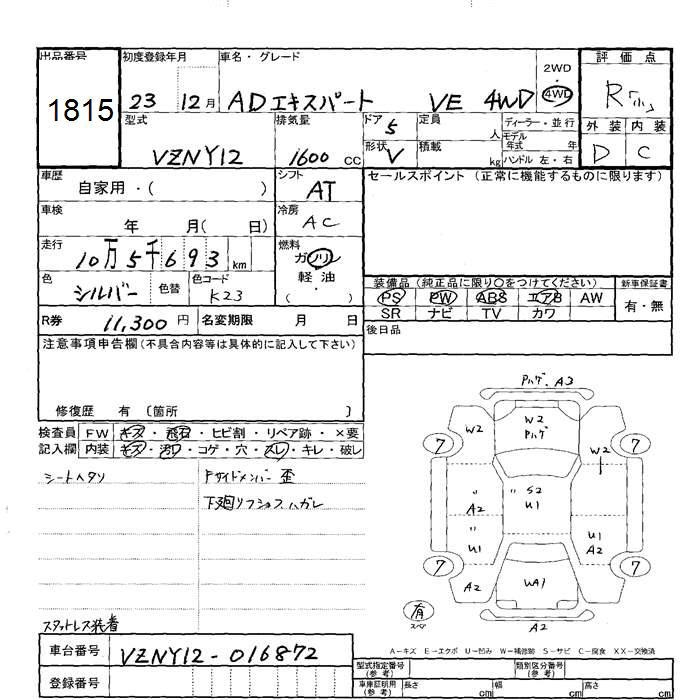 出品番号 初度登録年月 車名・グレード 2WD・4WD 評価点
1815 23 12月 ADエキスパート VE 4WD R「小」
型式 排気量 ドア 5 定員 人 ディーラー・並行 外装 内装
VZNY12 1600 cc 形状 V 積載 kg モデル年式 年 D C
ハンドル 左・右
車歴 自家用・( ) シフト AT セールスポイント(正常に機能するものに限ります)
車検 年 月( 日) 冷房 AC
走行 10万5千693km 燃料 ガソリン 軽油・( )
色 シルバー 色替 色コード K23
装備品(純正品に限り〇をつけてください) 新車保証書
PS PW ABS エアB AW 有・無
SR ナビ TV カワ
R券 11,300円 名変期限 月 日 後日品
注意事項申告欄(不具合内容等は具体的に記入して下さい)
修復歴 有 〔箇所 〕
検査員 FW キズ・飛石・ヒビ割・リペア跡・×要
記入欄 内装 キズ・汚れ・コゲ・穴・スレ・キレ・破レ
シートヘタリ Fサイドメンバー歪
下廻リフショクハガレ
スタットレス装着
Pハゲ. A3
W2 W2 Pハゲ W2
7 7
〃 A2 〃 S2 U1
〃 U1 U1 A2
7 7
A2 UA1
有 スペア A2
A−キズ E−エクボ U−凹み W−補修跡 S−サビ C−腐食 XX−交換済
車台番号 VZNY12-016872
登録番号
型式指定番号(参考) 類別区分番号(参考)
車庫証明用(参考) 長さ cm 幅 cm 高さ cm